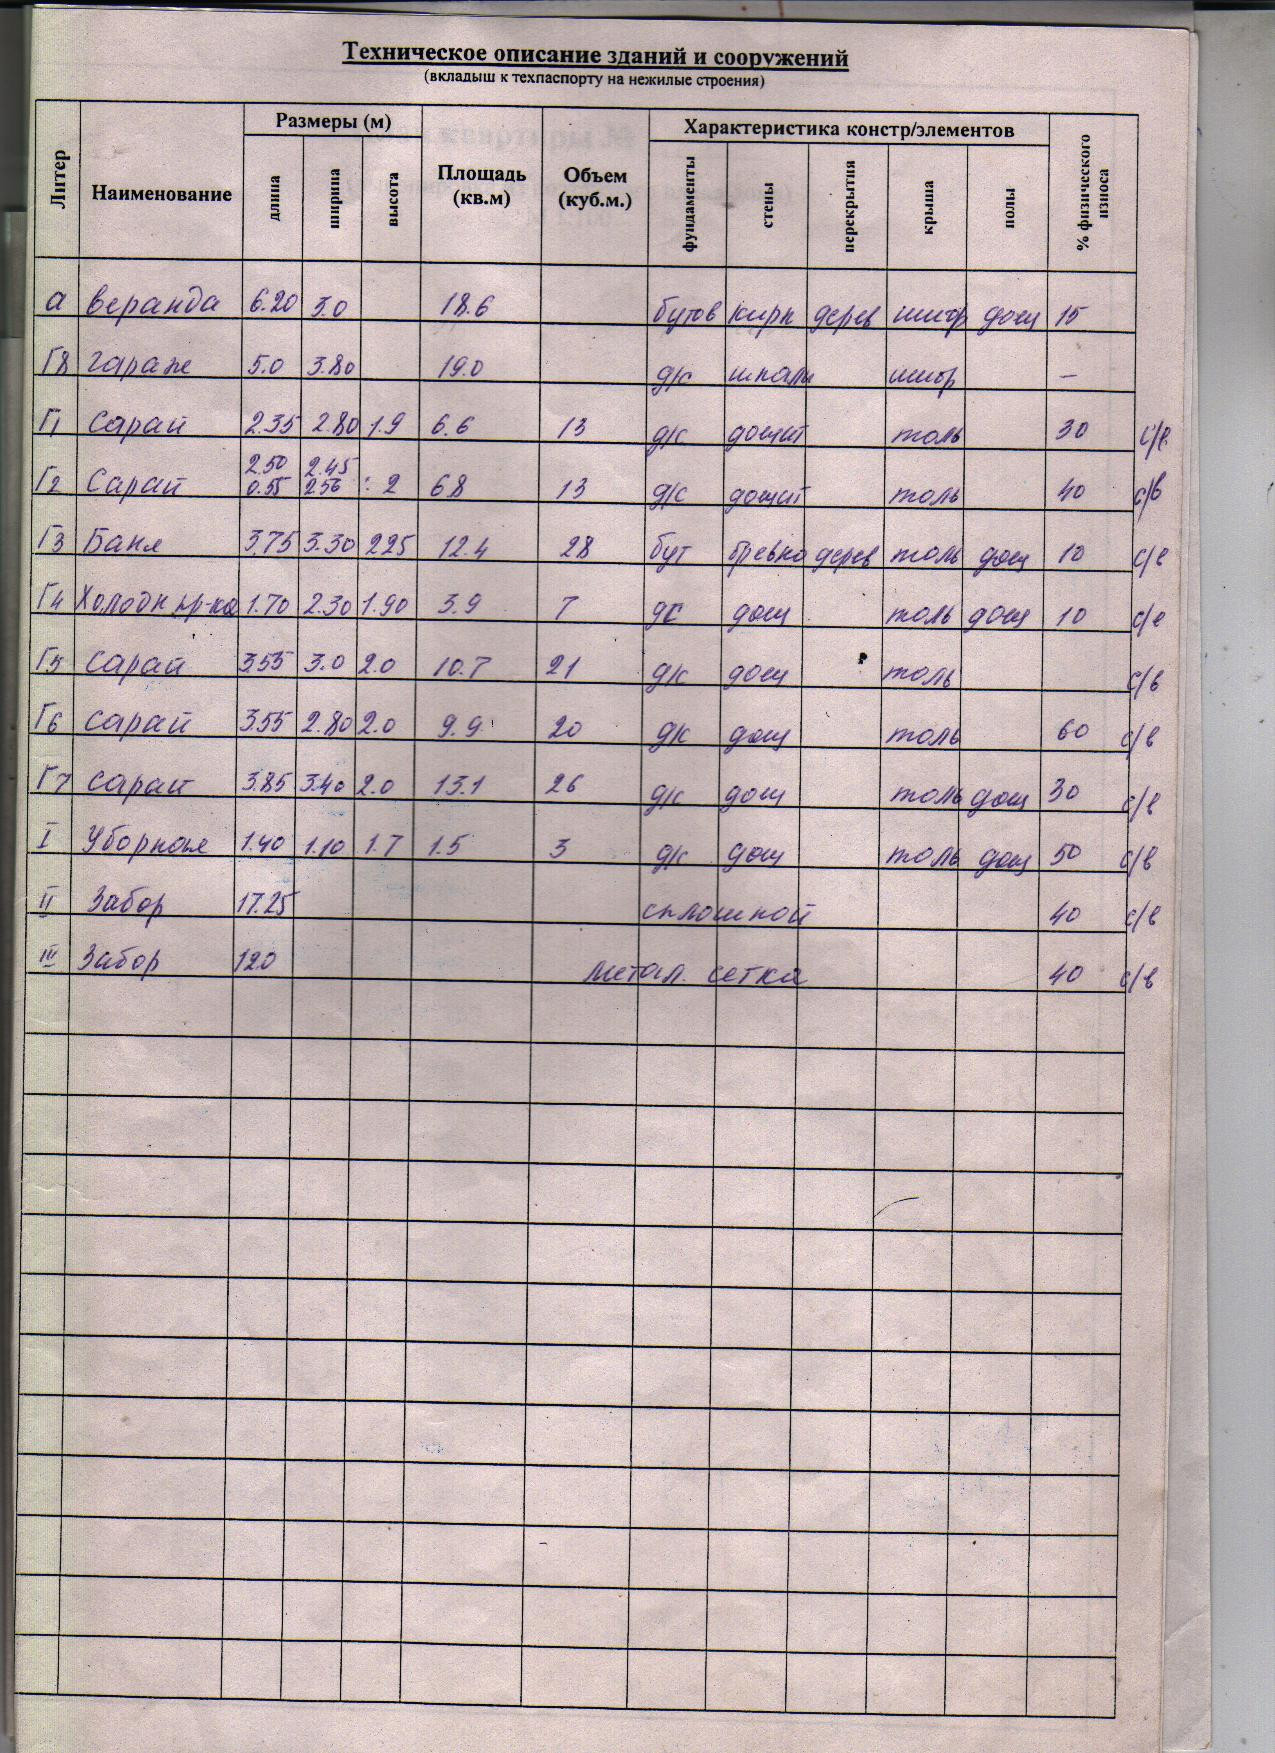 Техническое описание зданий и сооружений
(вкладыш к техпаспорту на нежилые строения)
Литер Наименование Размеры (м) Площадь (кв.м) Объем (куб.м.) Характеристика констр/элементов % физического износа
длина ширина высота фундаменты стены перекрытия крыша полы
а веранда 6.20 3.0 18.6 бутов кирп дерев шифр дощ 15
Г8 гараж 5.0 3.80 19.0 д/с шпалы шифр –
Г1 Сарай 2.35 2.80 1.9 6.6 13 д/с дощат толь 30 с/в
Г2 Сарай 2.50 0.55 2.45 2.56 2 6.8 13 д/с дощат толь 40 с/в
Г3 Баня 3.75 3.30 2.25 12.4 28 бут бревно дерев толь дощ 10 с/в
Г4 Холодн пр-ка 1.70 2.30 1.90 3.9 7 дс дощ толь дощ 10 с/в
Г5 Сарай 3.55 3.0 2.0 10.7 21 д/с дощ толь с/в
Г6 Сарай 3.55 2.80 2.0 9.9 20 д/с дощ толь 60 с/в
Г7 Сарай 3.85 3.40 2.0 13.1 26 д/с дощ толь дощ 30 с/в
I Уборная 1.40 1.10 1.7 1.5 3 д/с дощ толь дощ 50 с/в
II Забор 17.25 сплошной 40 с/в
III Забор 12.0 метал. сетка 40 с/в